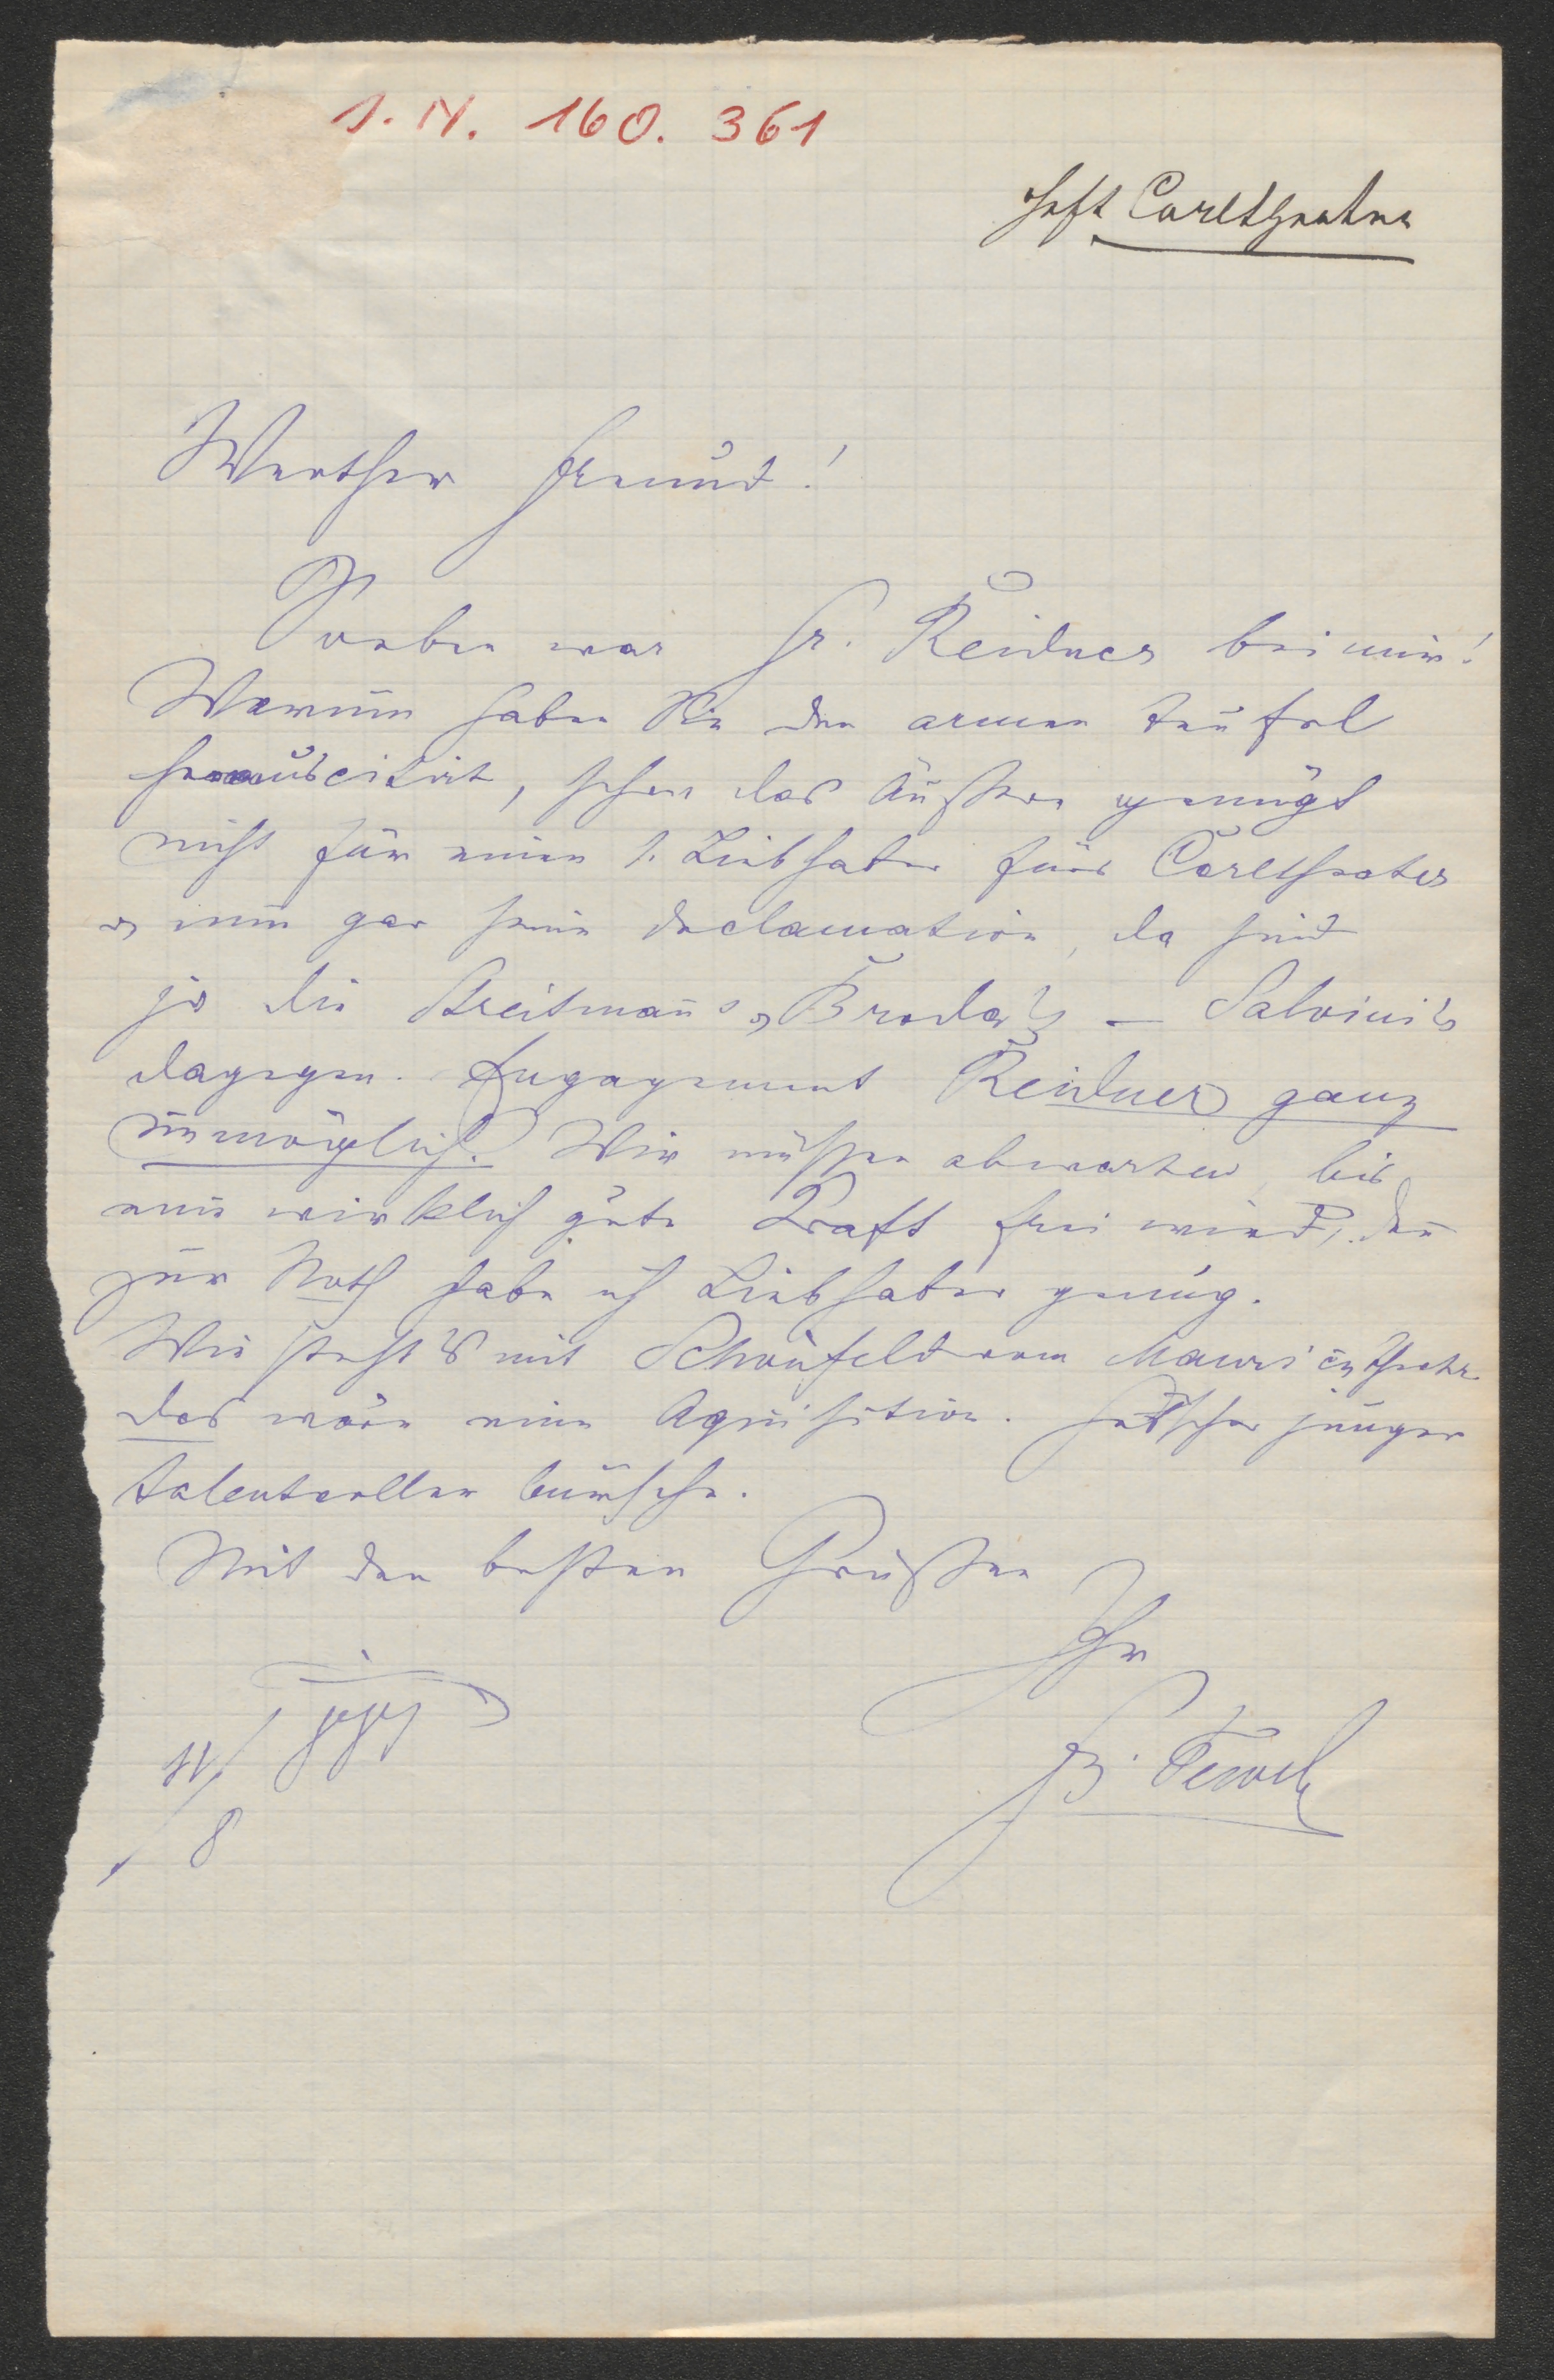 I. N. 160.361
Heft Carltheater
Werther Freund!
Soeben war Hr. Reidner bei mir!
Warum haben Sie den armen Teufel
herauscitirt, schon das Äußere genügt
nicht für einen 1. Liebhaber fürs Carltheater
u nun gar seine Declamation, da sind
ja die Streitmann's, Broda's – Salvini's
dagegen. Engagement Reidner ganz
unmöglich. Wir müssen abwarten bis
eine wirklich gute Kraft frei wird, deñ
zur Noth habe ich Liebhaber genug.
Wie steht's mit Schönfeld vom
das wäre eine Aquisition. Hübscher junger
talentvoller Bursche.
Mit den besten Grüßen
Ihr
11/8
Tewele